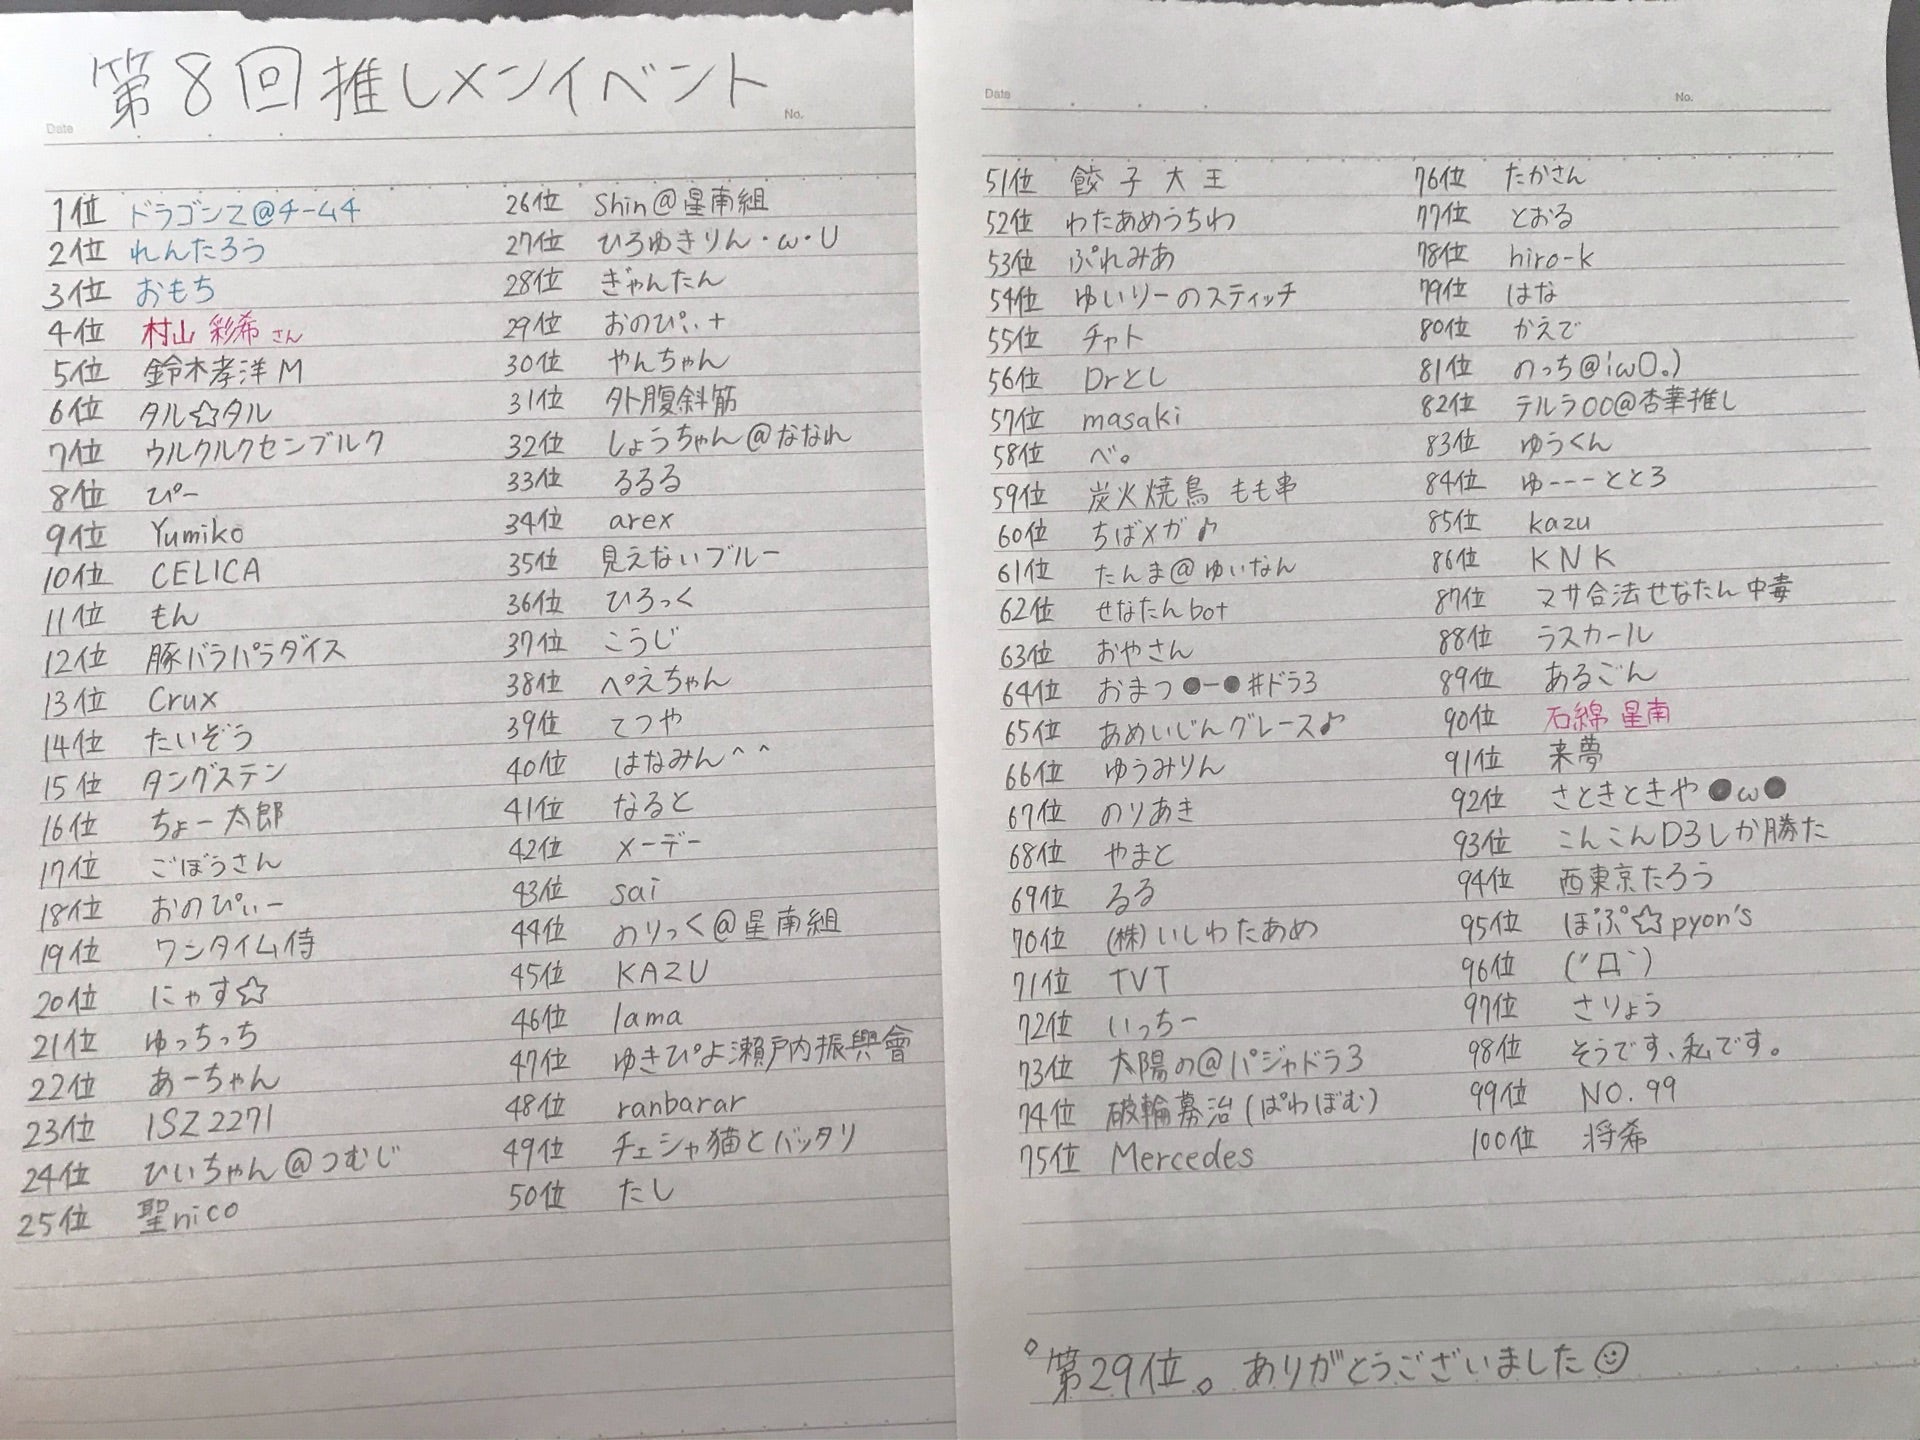 第8回推しメンイベント
Date
No.
1位 ドラゴンZ@チーム4
2位 れんたろう
3位 おもち
4位 村山 彩希さん
5位 鈴木孝洋M
6位 タル☆タル
7位 ウルクルクセンブルク
8位 ぴー
9位 Yumiko
10位 CELICA
11位 もん
12位 豚バラパラダイス
13位 Crux
14位 たいぞう
15位 タングステン
16位 ちょー太郎
17位 ごぼうさん
18位 おのぴぃー
19位 ワンタイム侍
20位 にゃす☆
21位 ゆっちっち
22位 あーちゃん
23位 ISZ2271
24位 ひいちゃん@つむじ
25位 聖nico
26位 Shin@星南組
27位 ひろゆきりん・ω・U
28位 ぎゃんたん
29位 おのぴぃ+
30位 やんちゃん
31位 外腹斜筋
32位 しょうちゃん@ななれ
33位 るるる
34位 arex
35位 見えないブルー
36位 ひろっく
37位 こうじ
38位 ぺえちゃん
39位 てつや
40位 はなみん^^
41位 なると
42位 メーデー
43位 sai
44位 のりっく@星南組
45位 KAZU
46位 lama
47位 ゆきぴよ瀬戸内振興會
48位 ranbarar
49位 チェシャ猫とバッタリ
50位 たし
Date
No.
51位 餃子大王
52位 わたあめうちわ
53位 ぷれみあ
54位 ゆいりーのスティッチ
55位 チャト
56位 Drとし
57位 masaki
58位 べ。
59位 炭火焼鳥 もも串
60位 ちばメガ♪
61位 たんま@ゆいなん
62位 せなたんbot
63位 おやさん
64位 おまつ●ー●#ドラ3
65位 あめいじんグレース♪
66位 ゆうみりん
67位 のりあき
68位 やまと
69位 るる
70位 (株)いしわたあめ
71位 TVT
72位 いっちー
73位 太陽の@パジャドラ3
74位 破輪募治(ぱわぼむ)
75位 Mercedes
76位 たかさん
77位 とおる
78位 hiro-k
79位 はな
80位 かえで
81位 のっち@'ωO。)
82位 テルラ00@杏華推し
83位 ゆうくん
84位 ゆーーーととろ
85位 kazu
86位 KNK
87位 マサ合法せなたん中毒
88位 ラスカール
89位 あるごん
90位 石綿 星南
91位 来夢
92位 さときときや●ω●
93位 こんこんD3しか勝た
94位 西東京たろう
95位 ぽぷ☆pyon's
96位 (´Д`)
97位 さりょう
98位 そうです、私です。
99位 NO.99
100位 将希
第29位。ありがとうございました☺